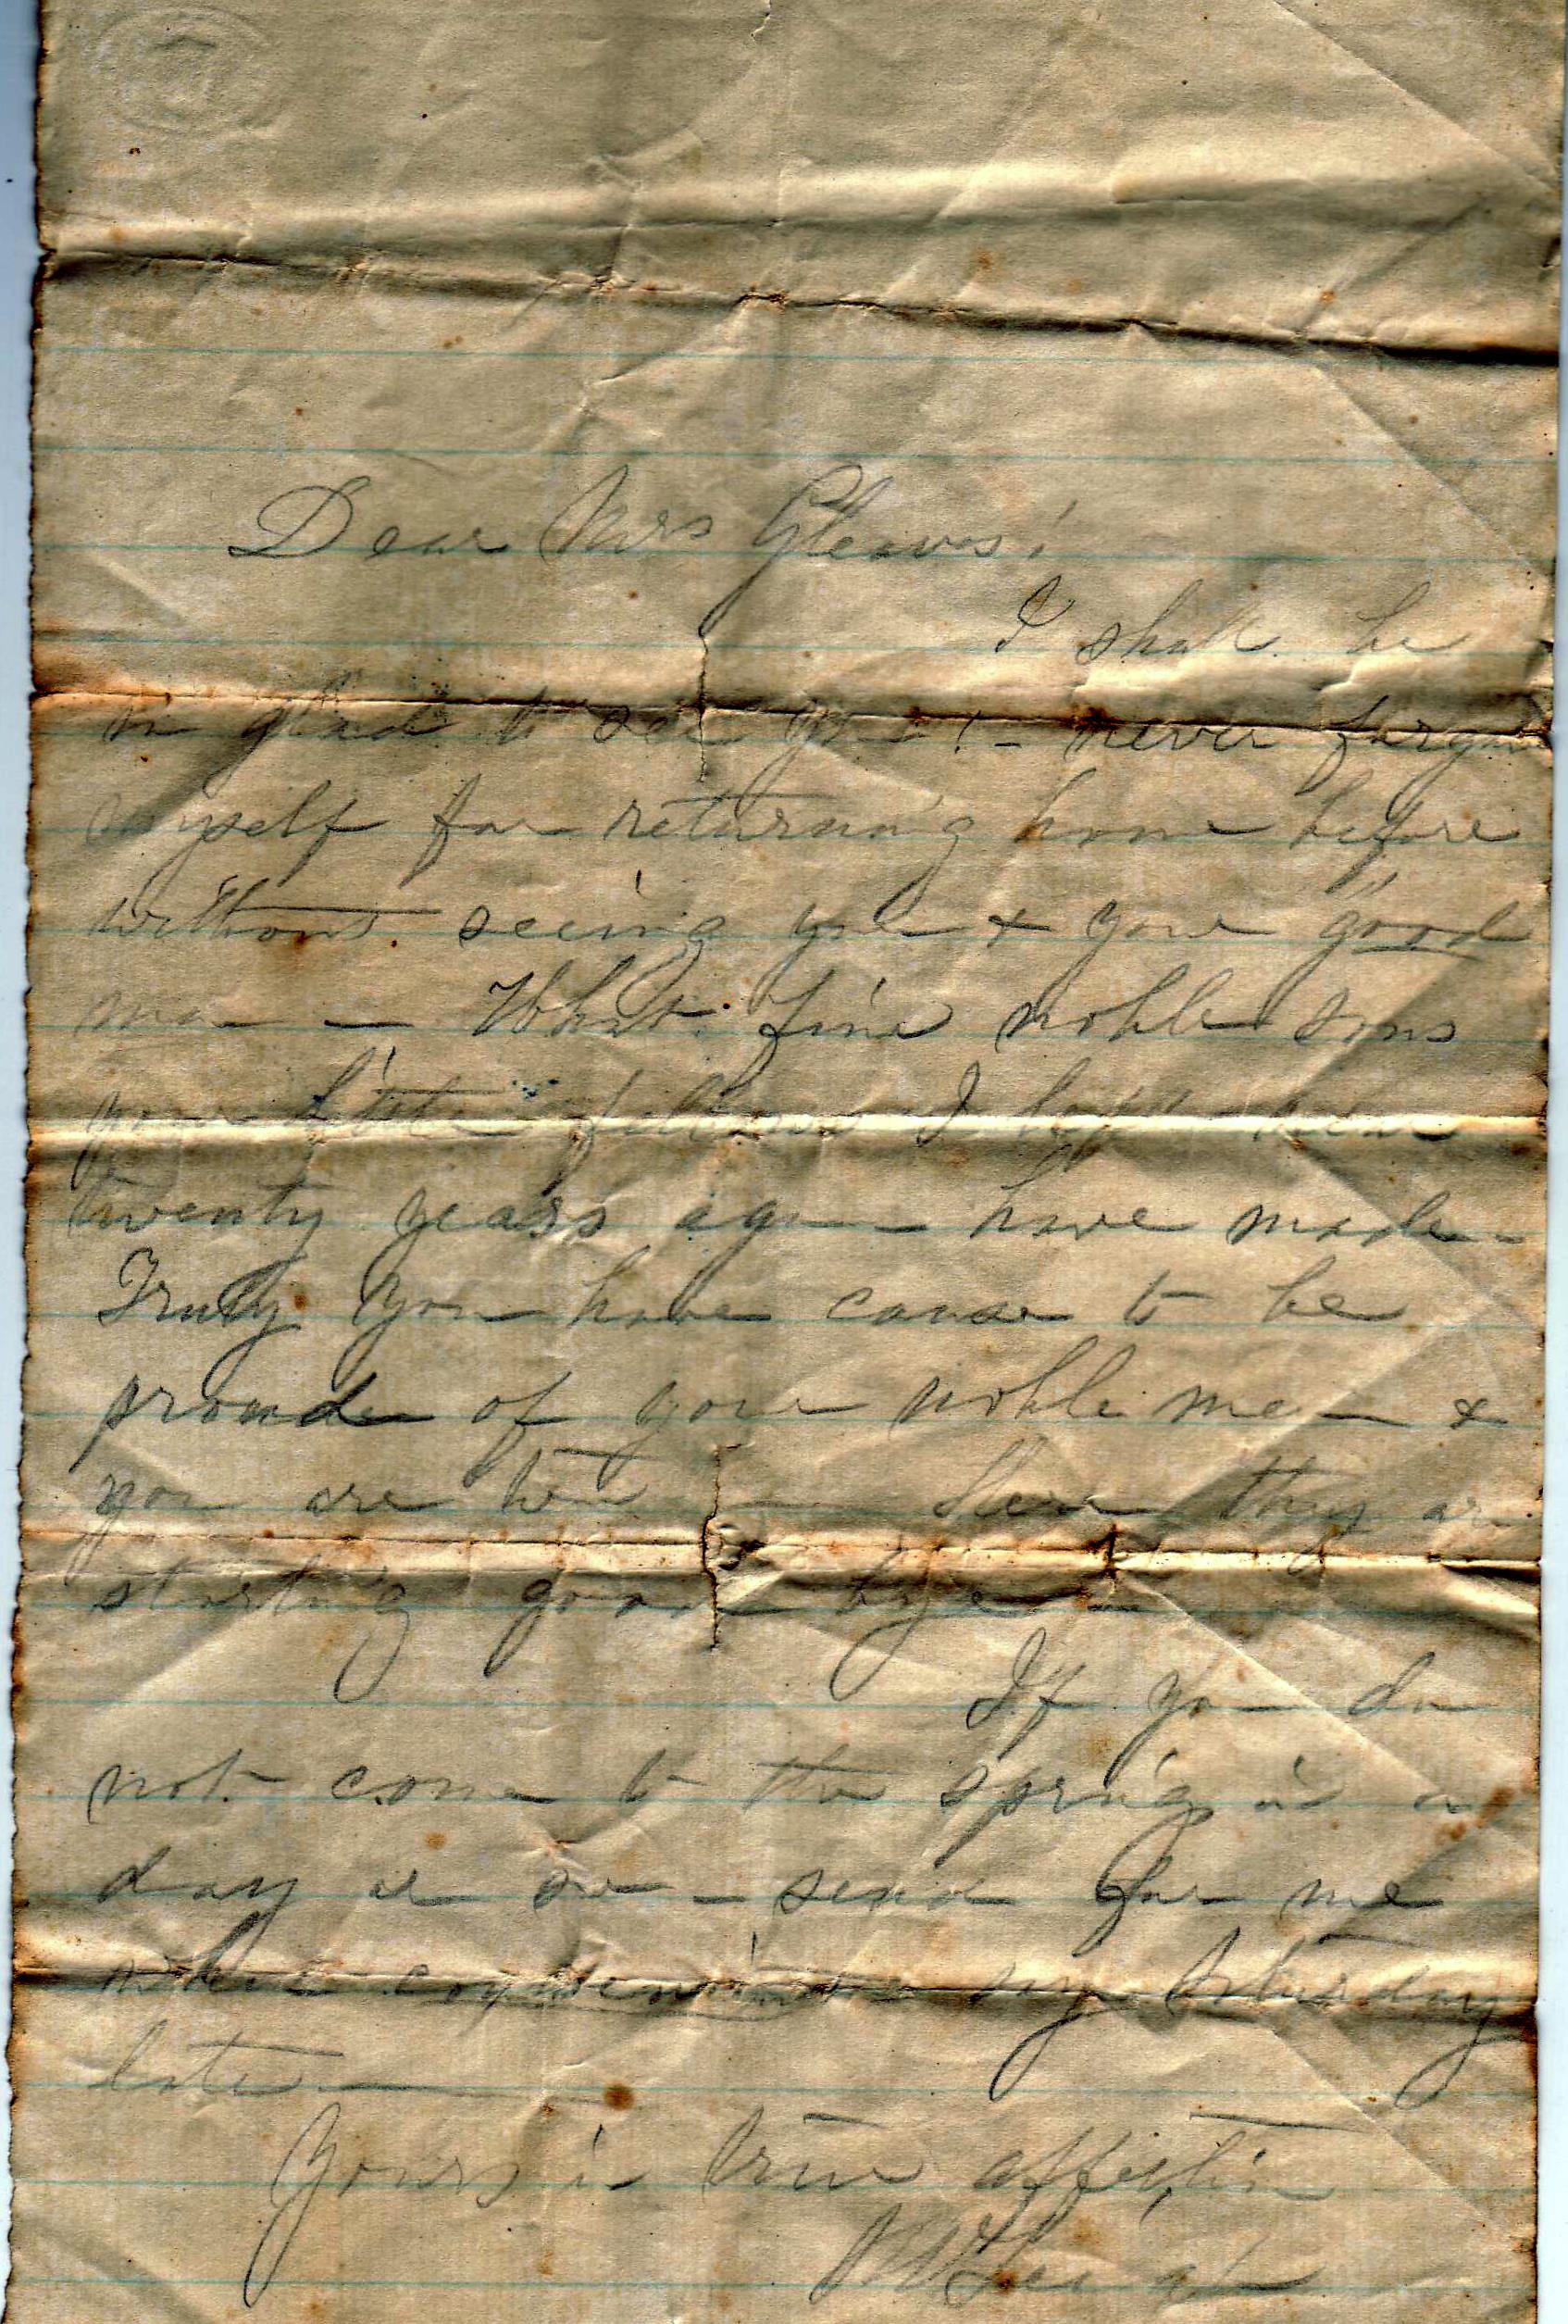 Dear Mrs Gleaves!
I shall be
so glad to see you! - never forgive
myself for returning home before
without seeing you & your good
man — What fine noble sons
your little fellows I
twenty years ago — have made -
Truly you have cause to be
proud of your noble men &
you are too — Here they are
starting good bye —
If you do
not come to the springs in a
day or so — send for me
when convenient say Saturday
late —
Yours in true affection